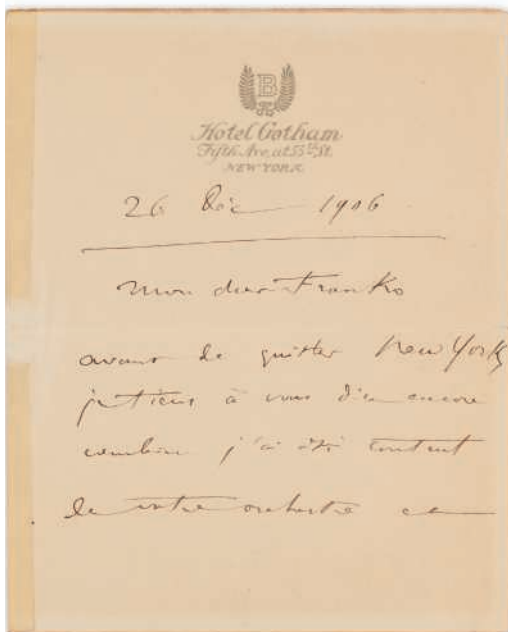 B
Hotel Gotham
Fifth Ave, at 55th St.
NEW YORK
26 Déc 1906
Mon cher Franko
avant de quitter New York
je tiens à vous dire encore
combien j'ai été content
de votre orchestre